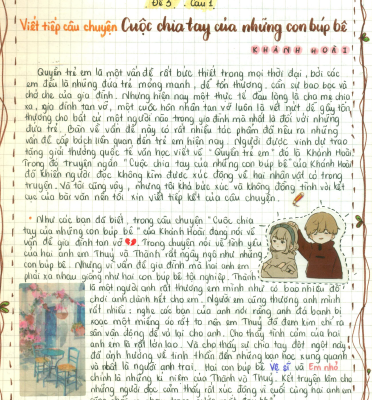 Đề 3. Câu 1
Viết tiếp câu chuyện Cuộc chia tay của những con búp bê
KHÁNH HOÀI
Quyền trẻ em là một vấn đề rất bức thiết trong mọi thời đại, bởi các
em đều là những đứa trẻ mỏng manh, dễ tổn thương, cần sự bao bọc và
chở che của gia đình. Nhưng hiện nay một thực tế đau lòng là cha mẹ chia
xa, gia đình tan vỡ, một cuộc hôn nhân tan vỡ luôn là vết nứt dễ gây tổn
thương cho bất cứ một người nào trong gia đình mà nhất là đối với những
đứa trẻ. Bàn về vấn đề này có rất nhiều tác phẩm đã nêu ra những
vấn đề cấp bách liên quan đến trẻ em hiện nay. Người được vinh dự trao
tặng giải thưởng quốc tế văn học viết về "Quyền trẻ em" đó là Khánh Hoài.
Trong đó truyện ngắn "Cuộc chia tay của những con búp bê" của Khánh Hoài
đã khiến người đọc không kìm được xúc động về hai nhân vật có trong
truyện. Và tôi cũng vậy, nhưng tôi khá bức xúc và không đồng tình với kết
cục của bài văn nên tôi xin viết tiếp kết của câu chuyện.
• Như các bạn đã biết, trong câu chuyện "Cuộc chia
tay của những con búp bê" của Khánh Hoài đang nói về
vấn đề gia đình tan vỡ. Trong chuyện nói về tình yêu
của hai anh em Thuỷ và Thành rất ngây ngô như những
con búp bê. Nhưng vì vấn đề gia đình mà hai anh em
phải xa nhau giống như hai con búp bê tội nghiệp. Thành
là một người anh rất thương em mình như có bao nhiêu đồ
chơi anh dành hết cho em. Người em cũng thương anh mình
rất nhiều: nghe các bạn của anh nói rằng anh đá banh bị
xoạc một miếng áo rất to nên em Thuỷ đã đem kim chỉ ra
sân vận động để vá lại cho anh. Cho thấy tình cảm của hai
anh em là rất lớn lao. Và cho thấy sự chia tay đột ngột này
đã ảnh hưởng về tinh thần đến những bạn học xung quanh
và nhất là người anh trai. Hai con búp bê Vệ sĩ và Em nhỏ
chính là những kỉ niệm của Thành và Thuỷ. Kết truyện làm cho
những người đọc cảm thấy rất xúc động vì cuối cùng hai anh em